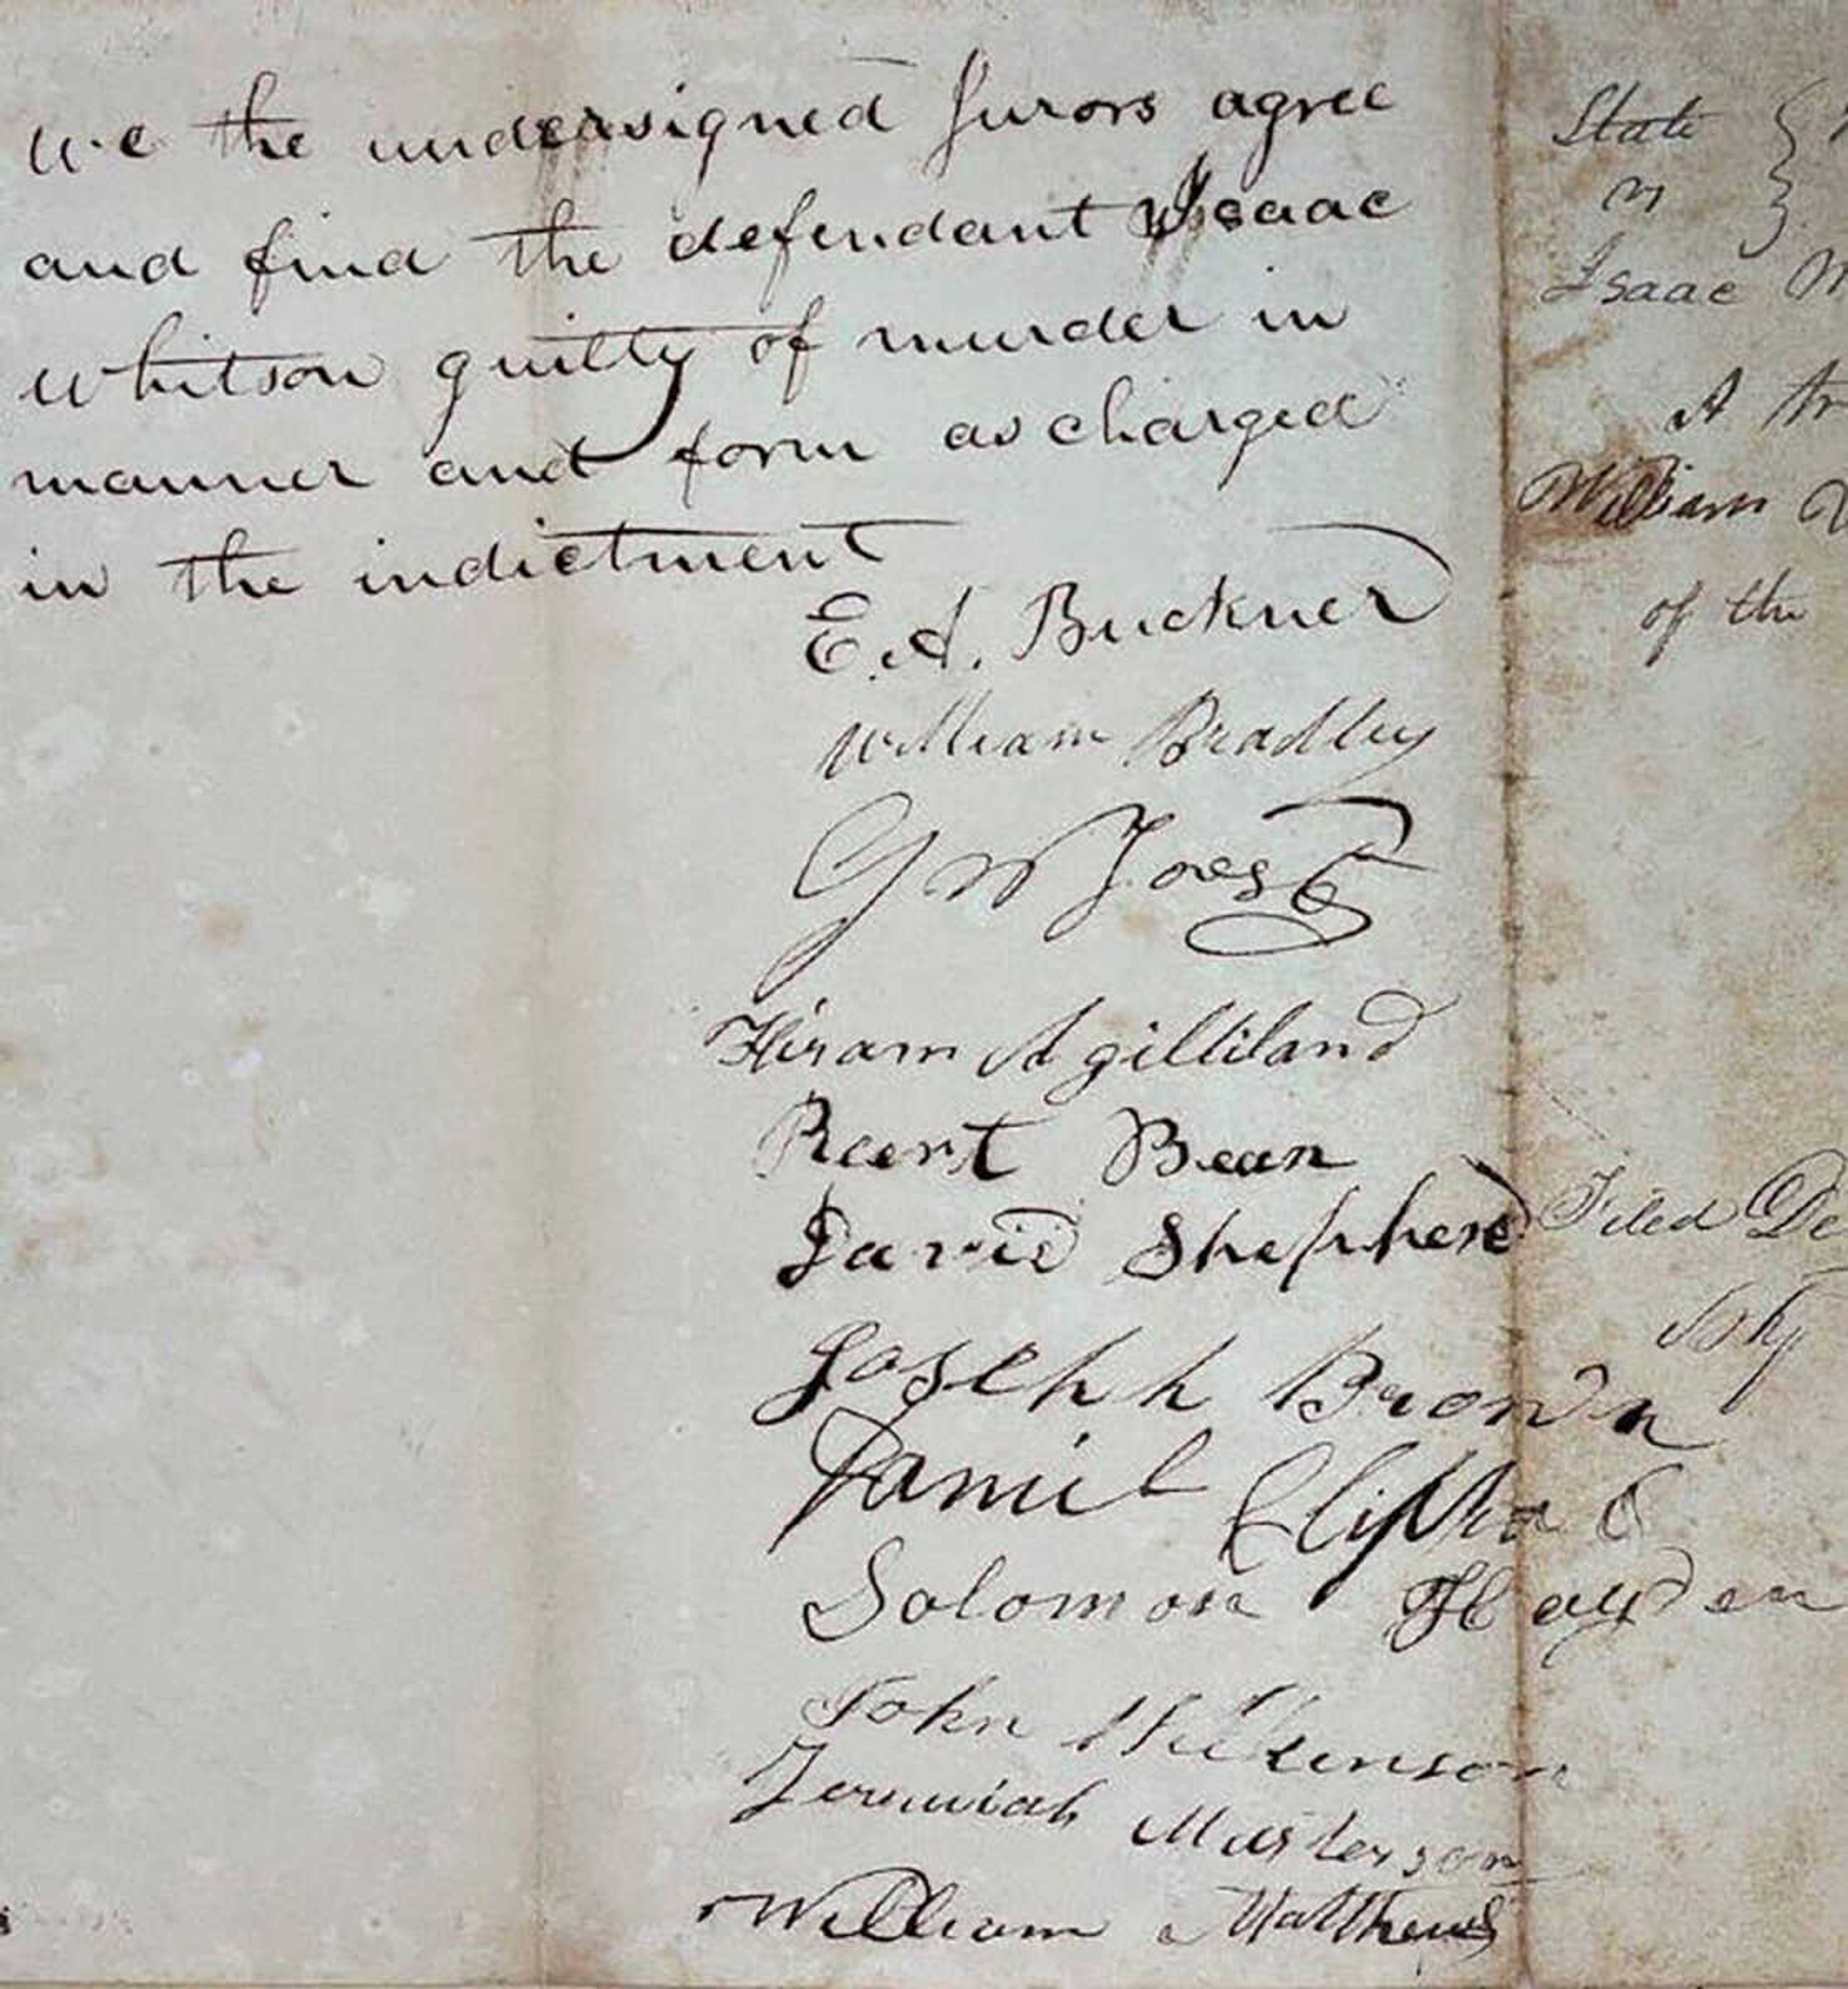 We the undersigned Jurors agree
and find the defendant Isaac
Whitson guilty of murder in
manner and form as charged
in the indictment
E. A. Buckner
William Bradley
G W
Hiram A gilliland
Bean
David Shepherd
Joseph Brown
Daniel
Solomon Hayden
John Wilkinson
Jeremiah Masterson
William Matthews
State
vs
Isaac
A
William
of the
Filed De